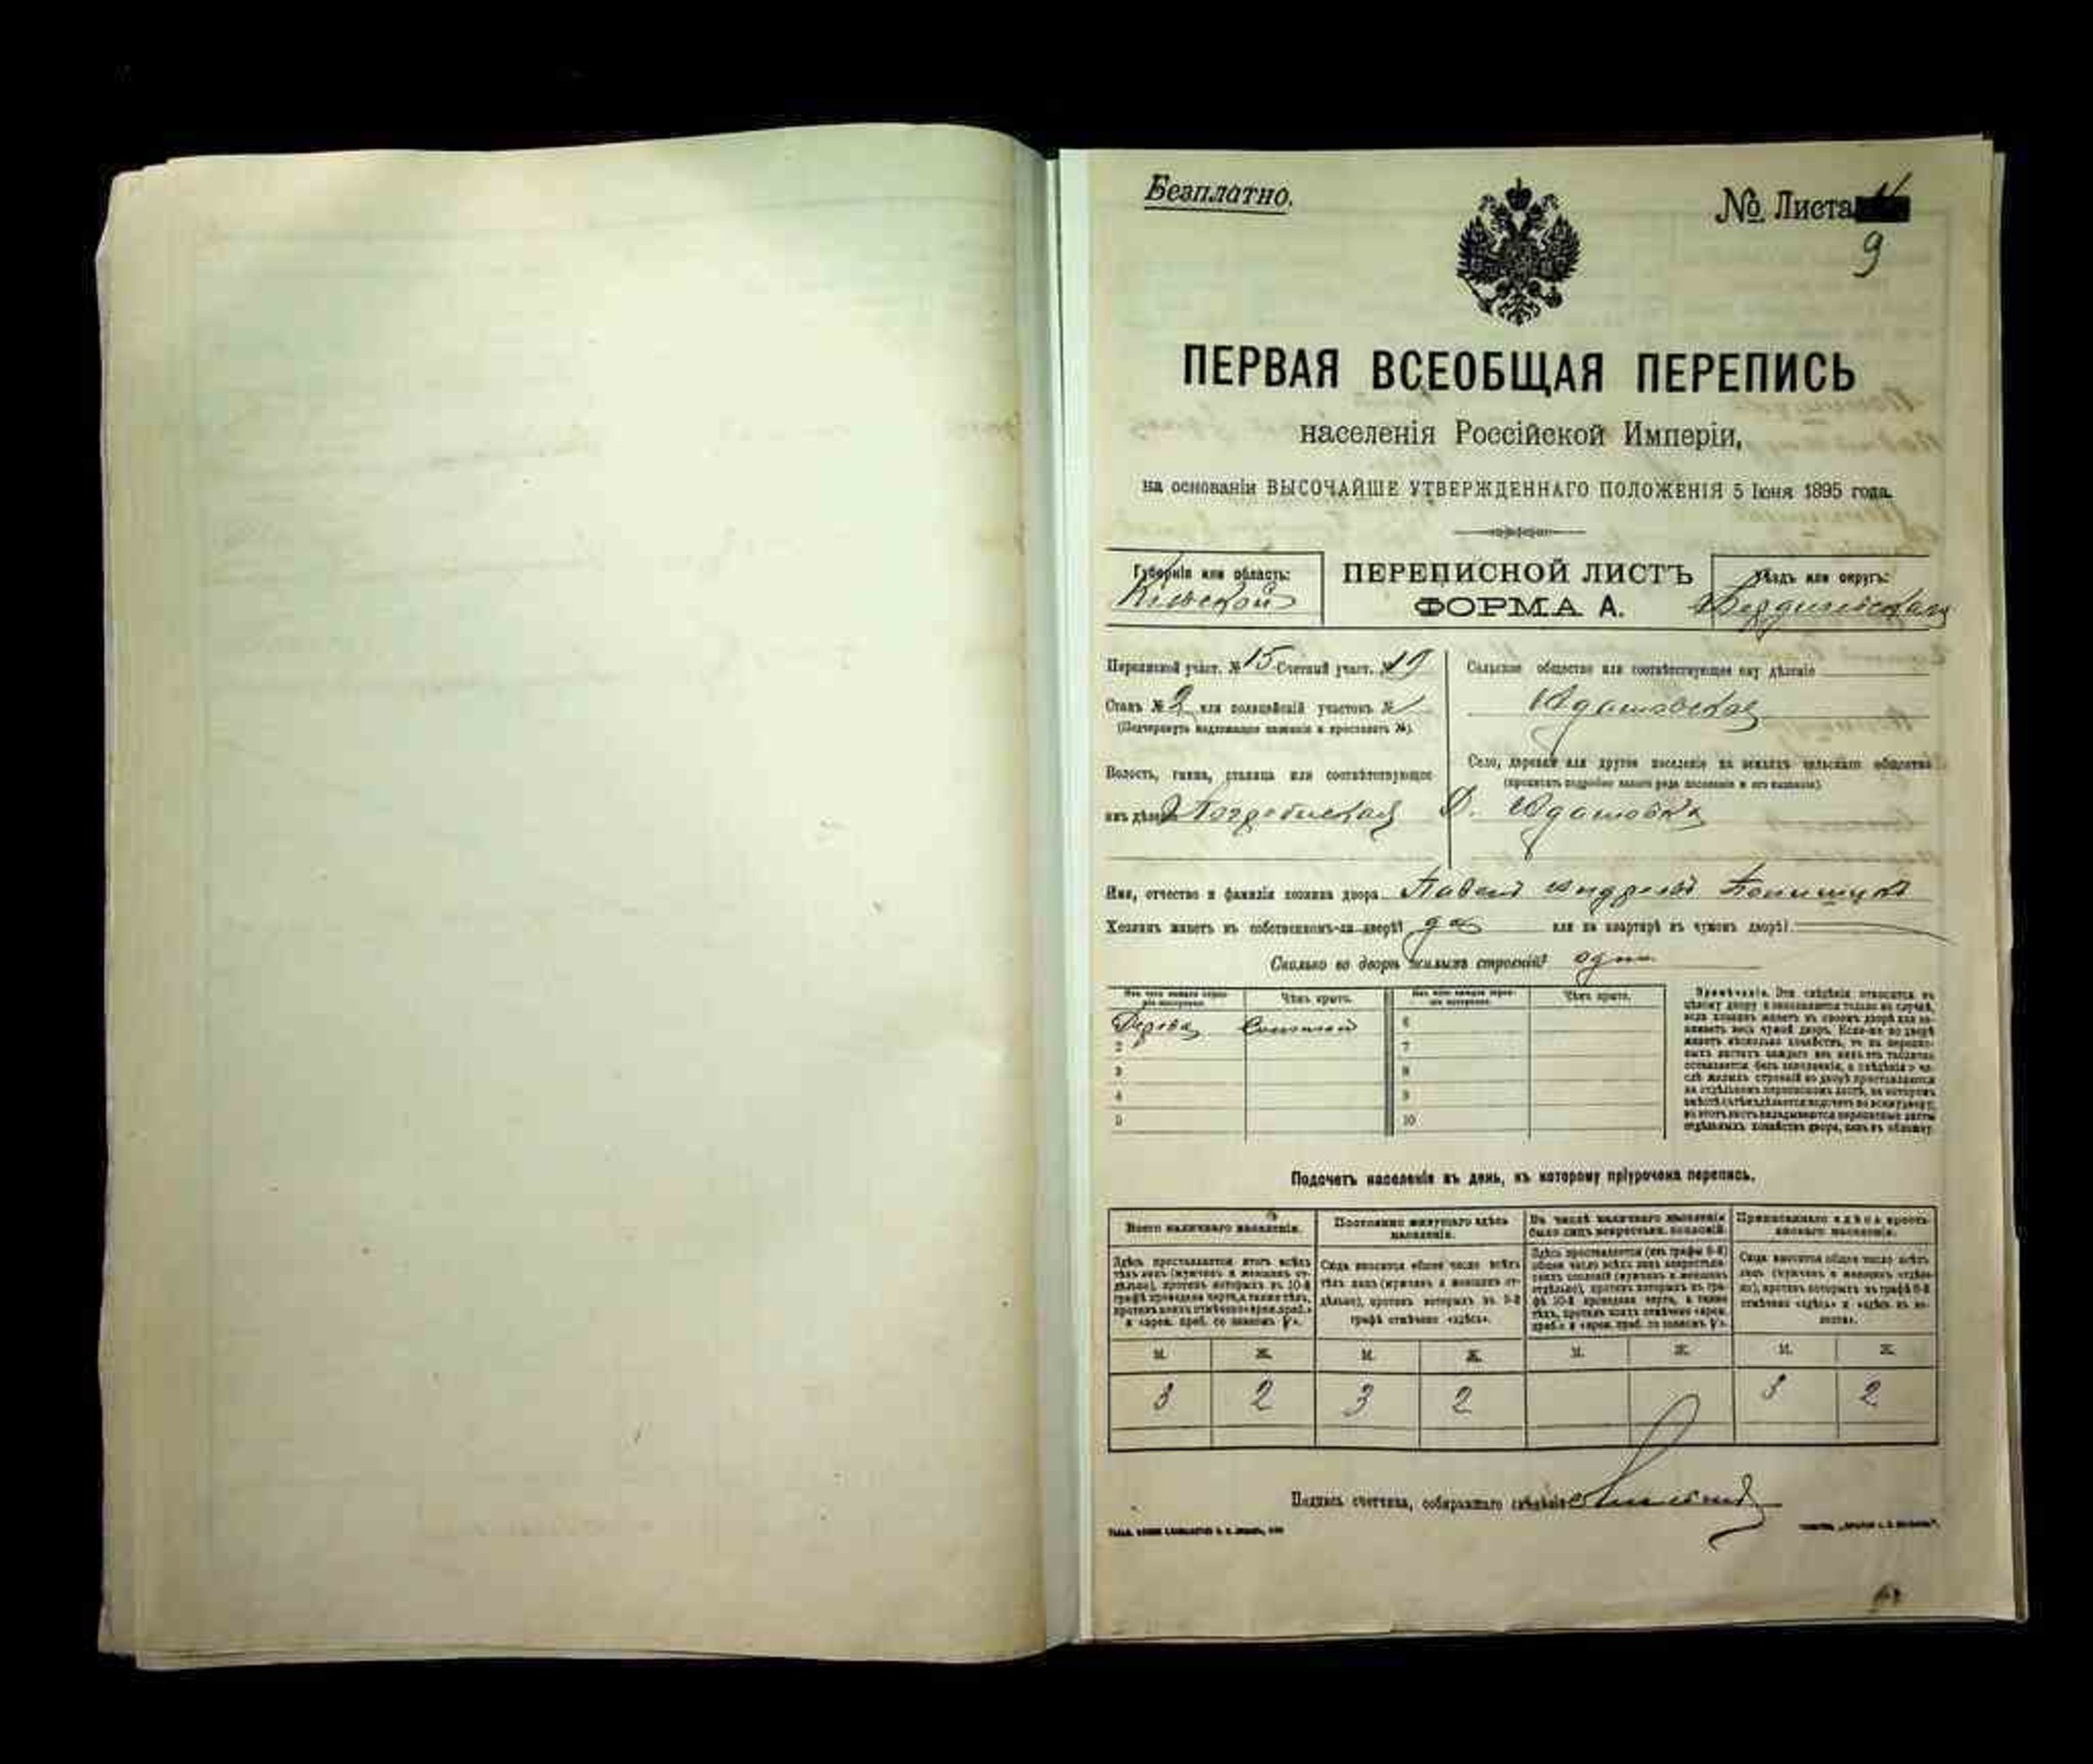 Безплатно.
№ Листа
9
ПЕРВАЯ ВСЕОБЩАЯ ПЕРЕПИСЬ
населенія Россійской Имперіи,
на основаніи ВЫСОЧАЙШЕ УТВЕРЖДЕННАГО ПОЛОЖЕНІЯ 5 Іюня 1895 года.
Губернія или область:
Кіевской
ПЕРЕПИСНОЙ ЛИСТЪ
ФОРМА А.
Уѣздъ или округъ:
Бердичевскаго
Переписной участ. № 15 Счетный участ. № 19
Станъ № 2 или полицейскій участокъ №
(Подчеркнуть надлежащее названіе и проставить №).
Волость, гмина, станица или соотвѣтствующее
имъ дѣленіе Погребиская
Сельское общество или соотвѣтствующее ему дѣленіе
Адамовское
Село, деревня или другое поселеніе на земляхъ сельскаго общества
(прописать подробно какого рода поселеніе и его названіе).
Д. Адамовка
Имя, отчество и фамилія хозяина двора Павелъ Андреевъ
Хозяинъ живетъ въ собственномъ-ли дворѣ? да или на квартирѣ въ чужомъ дворѣ?
Сколько во дворѣ жилыхъ строеній? одно
Чѣмъ крыто.
Чѣмъ крыто.
Дерева Соломой
6
2
7
3
8
4
9
5
10
Примѣчаніе. Эти свѣдѣнія относятся къ
цѣлому двору и заполняются только въ случаѣ,
если хозяинъ живетъ въ своемъ дворѣ или за-
нимаетъ весь чужой дворъ. Если-же во дворѣ
живетъ нѣсколько хозяйствъ, то на перепис-
ныхъ листахъ каждаго изъ нихъ эта табличка
оставляется безъ заполненія, а свѣдѣнія о чи-
слѣ жилыхъ строеній во дворѣ проставляются
на отдѣльномъ переписномъ листѣ, на которомъ
въ этотъ листъ вкладываются переписные листы
отдѣльныхъ хозяйствъ двора, какъ въ обложку.
Подсчетъ населенія въ день, къ которому пріурочена перепись.
Всего наличнаго населенія.
Здѣсь проставляется итогъ всѣхъ
тѣхъ лицъ (мужчинъ и женщинъ от-
дѣльно), противъ которыхъ въ 10-й
графѣ проведена черта, а также тѣхъ,
противъ коихъ отмѣчено «врем. преб.»
Постоянно живущаго здѣсь
населенія.
Сюда вносится общее число всѣхъ
тѣхъ лицъ (мужчинъ и женщинъ от-
дѣльно), противъ которыхъ въ 9-й
графѣ отмѣчено «здѣсь».
Въ числѣ наличнаго населенія
было лицъ некрестьян. сословій.
Здѣсь проставляется (изъ графы 6-й)
общее число всѣхъ лицъ некрестьян-
скихъ сословій (мужчинъ и женщинъ
отдѣльно), противъ которыхъ въ гра-
фѣ 10-й проведена черта, а также
тѣхъ, противъ коихъ отмѣчено «врем.
Приписаннаго здѣсь кресть-
янскаго населенія.
Сюда вносится общее число всѣхъ
лицъ (мужчинъ и женщинъ отдѣль-
но), противъ которыхъ въ графѣ 8-й
отмѣчено «здѣсь» и «здѣсь въ во-
лости».
М. Ж. М. Ж. М. Ж. М. Ж.
3 2 3 2 3 2
Подпись счетчика, собиравшаго свѣдѣнія